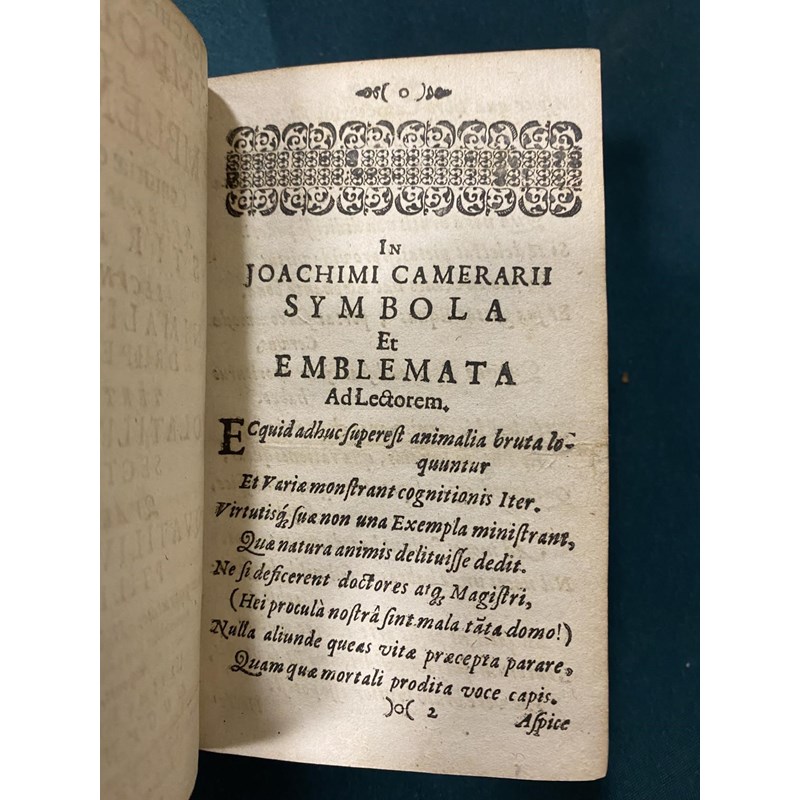 ( o )
In
JOACHIMI CAMERARII
SYMBOLA
Et
EMBLEMATA
Ad Lectorem.
ECquid adhuc ſupereſt animalia bruta lo-
quuntur
Et Variæ monſtrant cognitionis Iter.
Virtutisq́; ſuæ non una Exempla miniſtrant,
Quæ natura animis delituiſſe dedit.
Ne ſi deficerent doctores atq; Magiſtri,
(Hei procul à noſtrâ ſint mala tãta domo!)
Nulla aliunde queas vitæ præcepta parare,
Quam quæ mortali prodita voce capis.
)o( 2
Aſpice